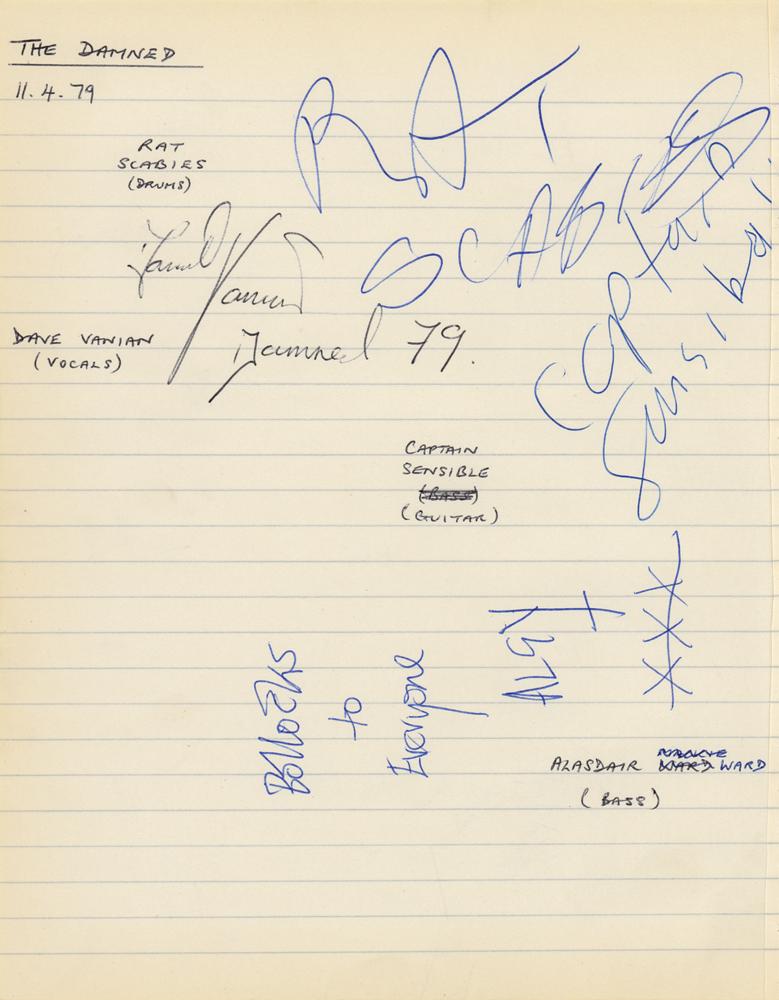 THE DAMNED
11.4.79
RAT
SCABIES
(DRUMS)
RAT
SCABIES
Vanian
Damned 79.
DAVE VANIAN
(VOCALS)
CAPTAIN
SENSIBLE
(BASS)
(GUITAR)
Captain
Sensible
Bollocks
to
Everyone
ALGY
XXX
ALASDAIR WARD
(BASS)